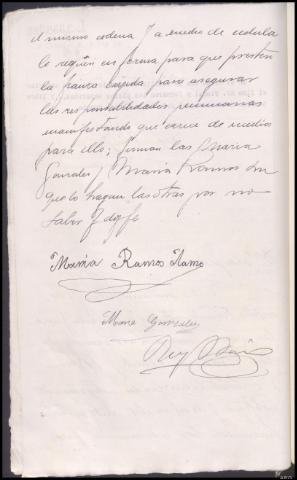 el mismo ordena y a medio de cedula
lo requiere en forma para que presten
la fianza exigida para asegurar
las responsabilidades pecuniarias
manifestando que carece de medios
para ello; firman las Maria
Gonzales y Maria Ramos sin
que lo hagan las otras por no
saber y doy fe
Maria Ramos Ramo
Maria Gonzalez